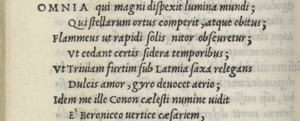 OMNIA qui magni dispexit lumina mundi;
Qui stellarum ortus comperit, atque obitus;
Flammeus ut rapidi solis nitor obscuretur;
Vt cedant certis sidera temporibus;
Vt Triuiam furtim sub Latmia saxa relegans
Dulcis amor, gyro deuocet aerio;
Idem me ille Conon cælesti numine uidit
E Beroniceo uertice cæsariem,